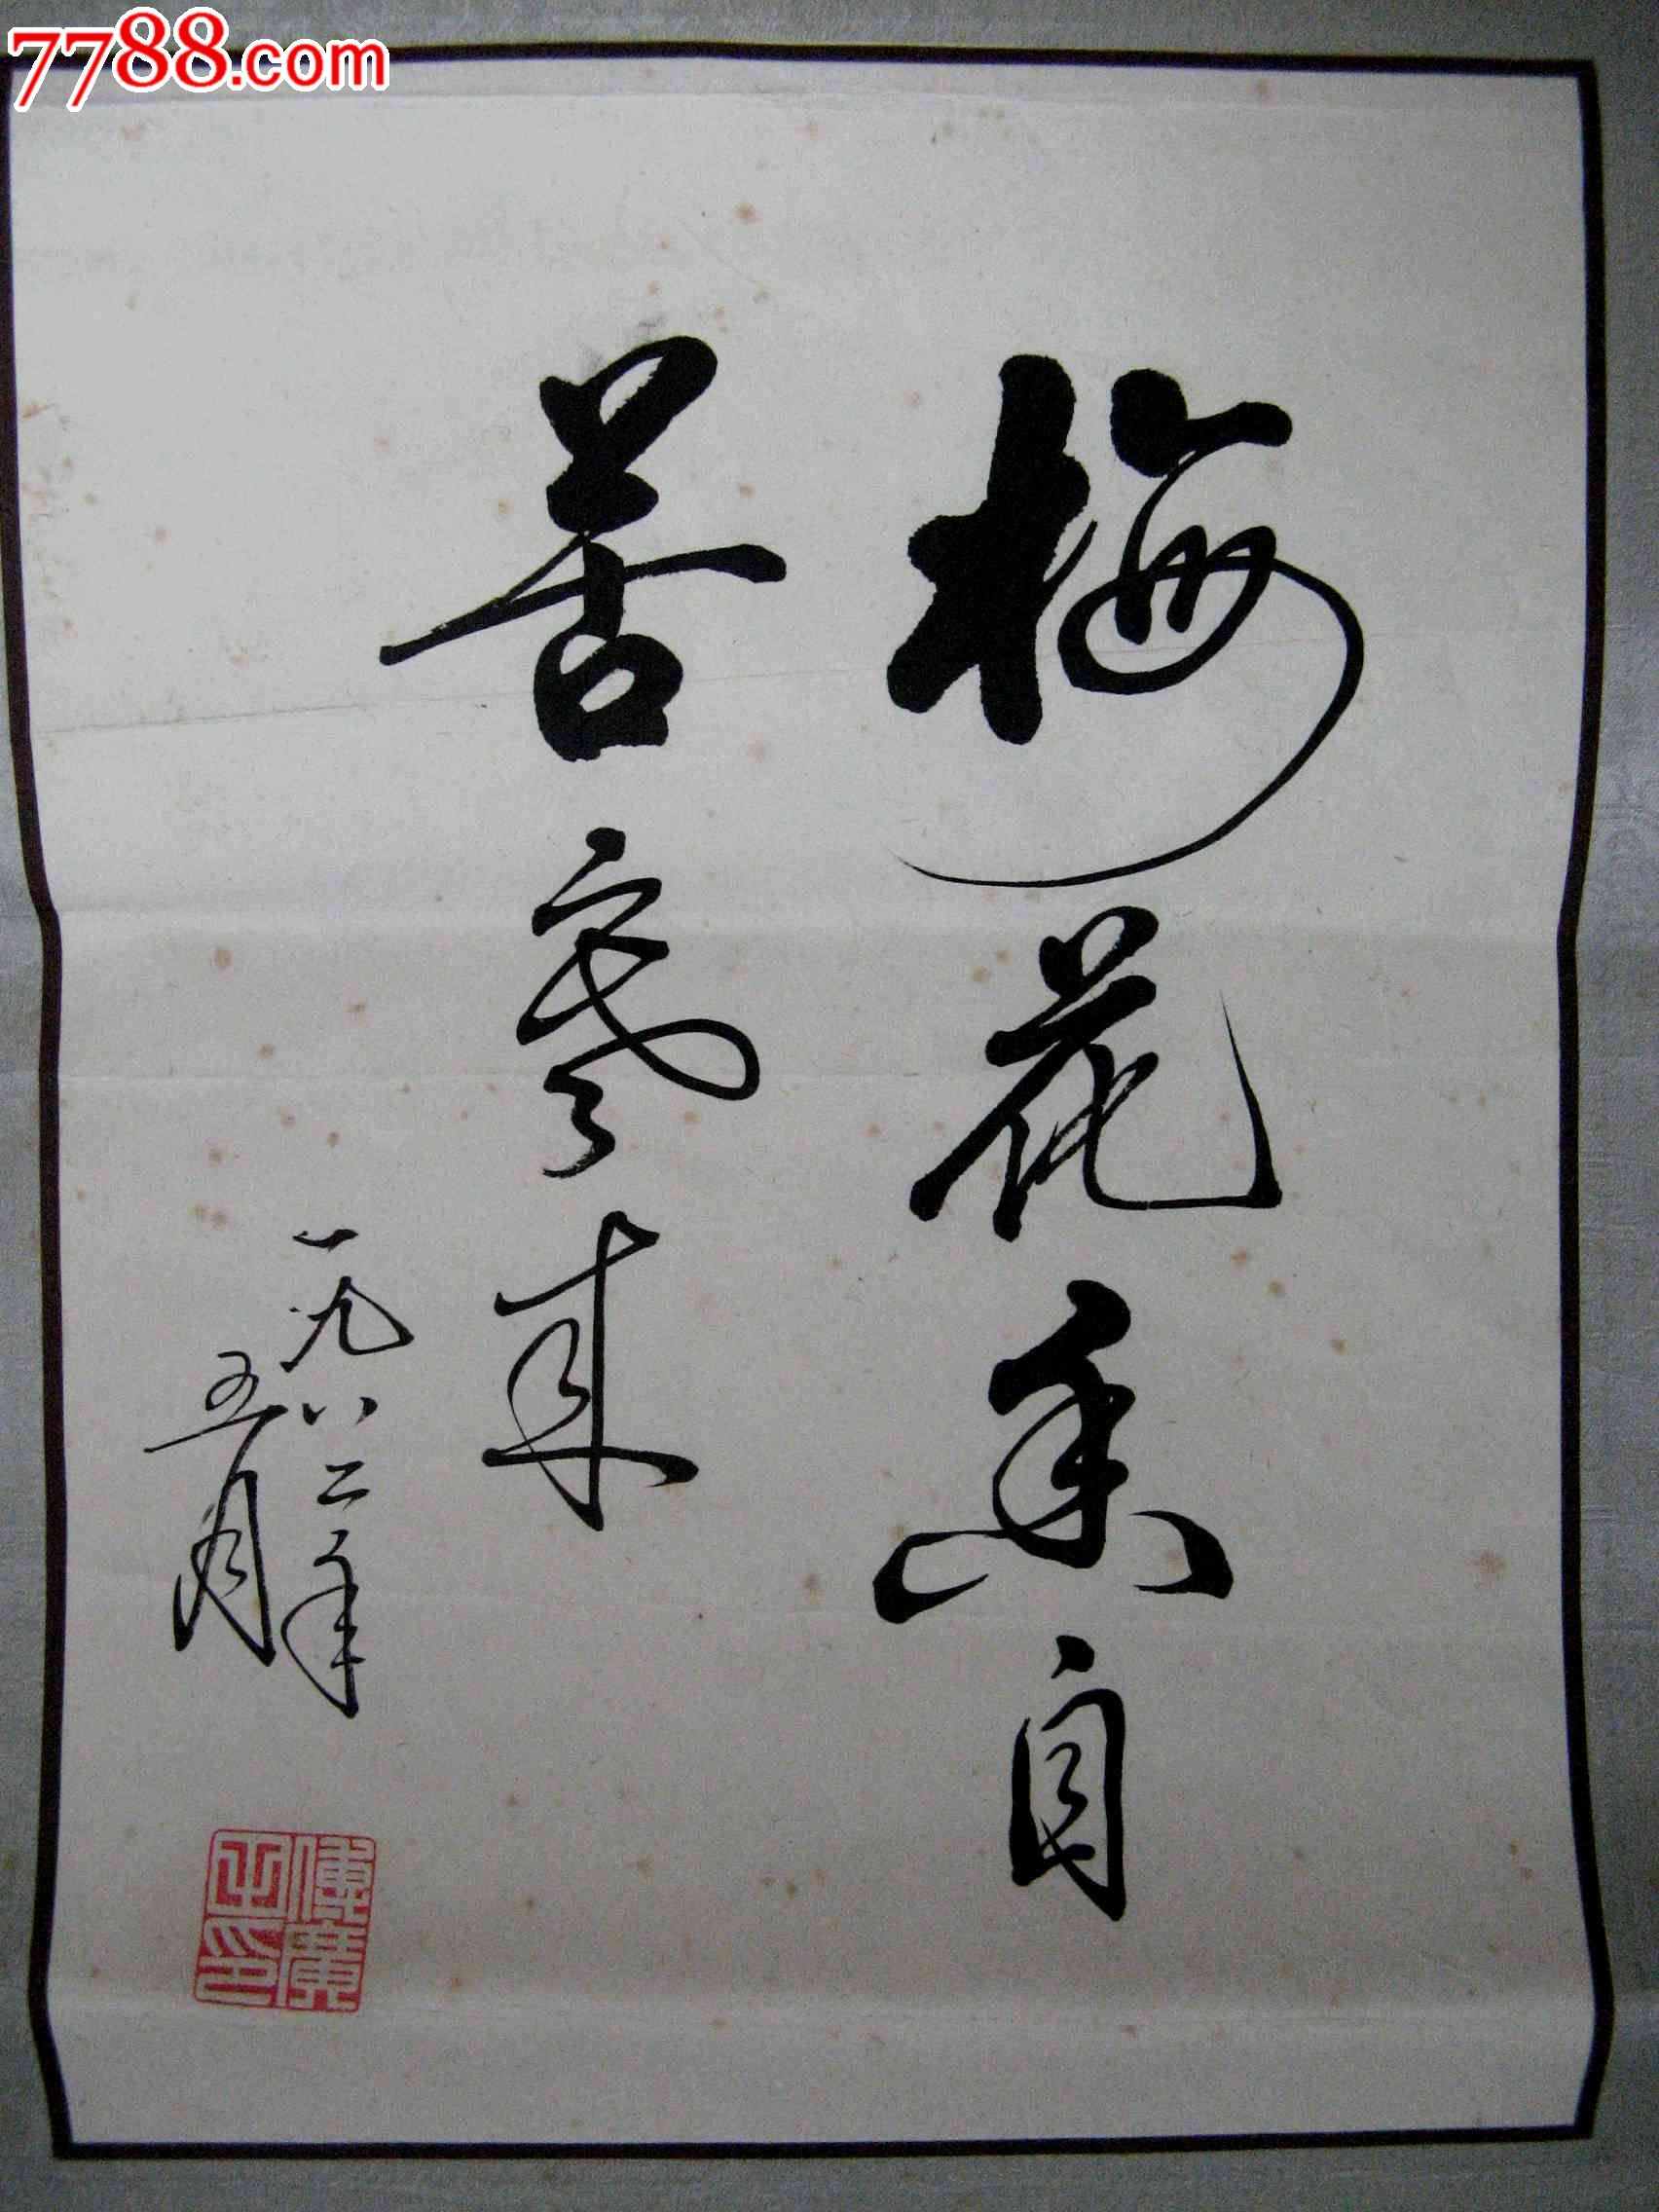 7788.com
梅花香自
苦寒来
一九八二年
五月